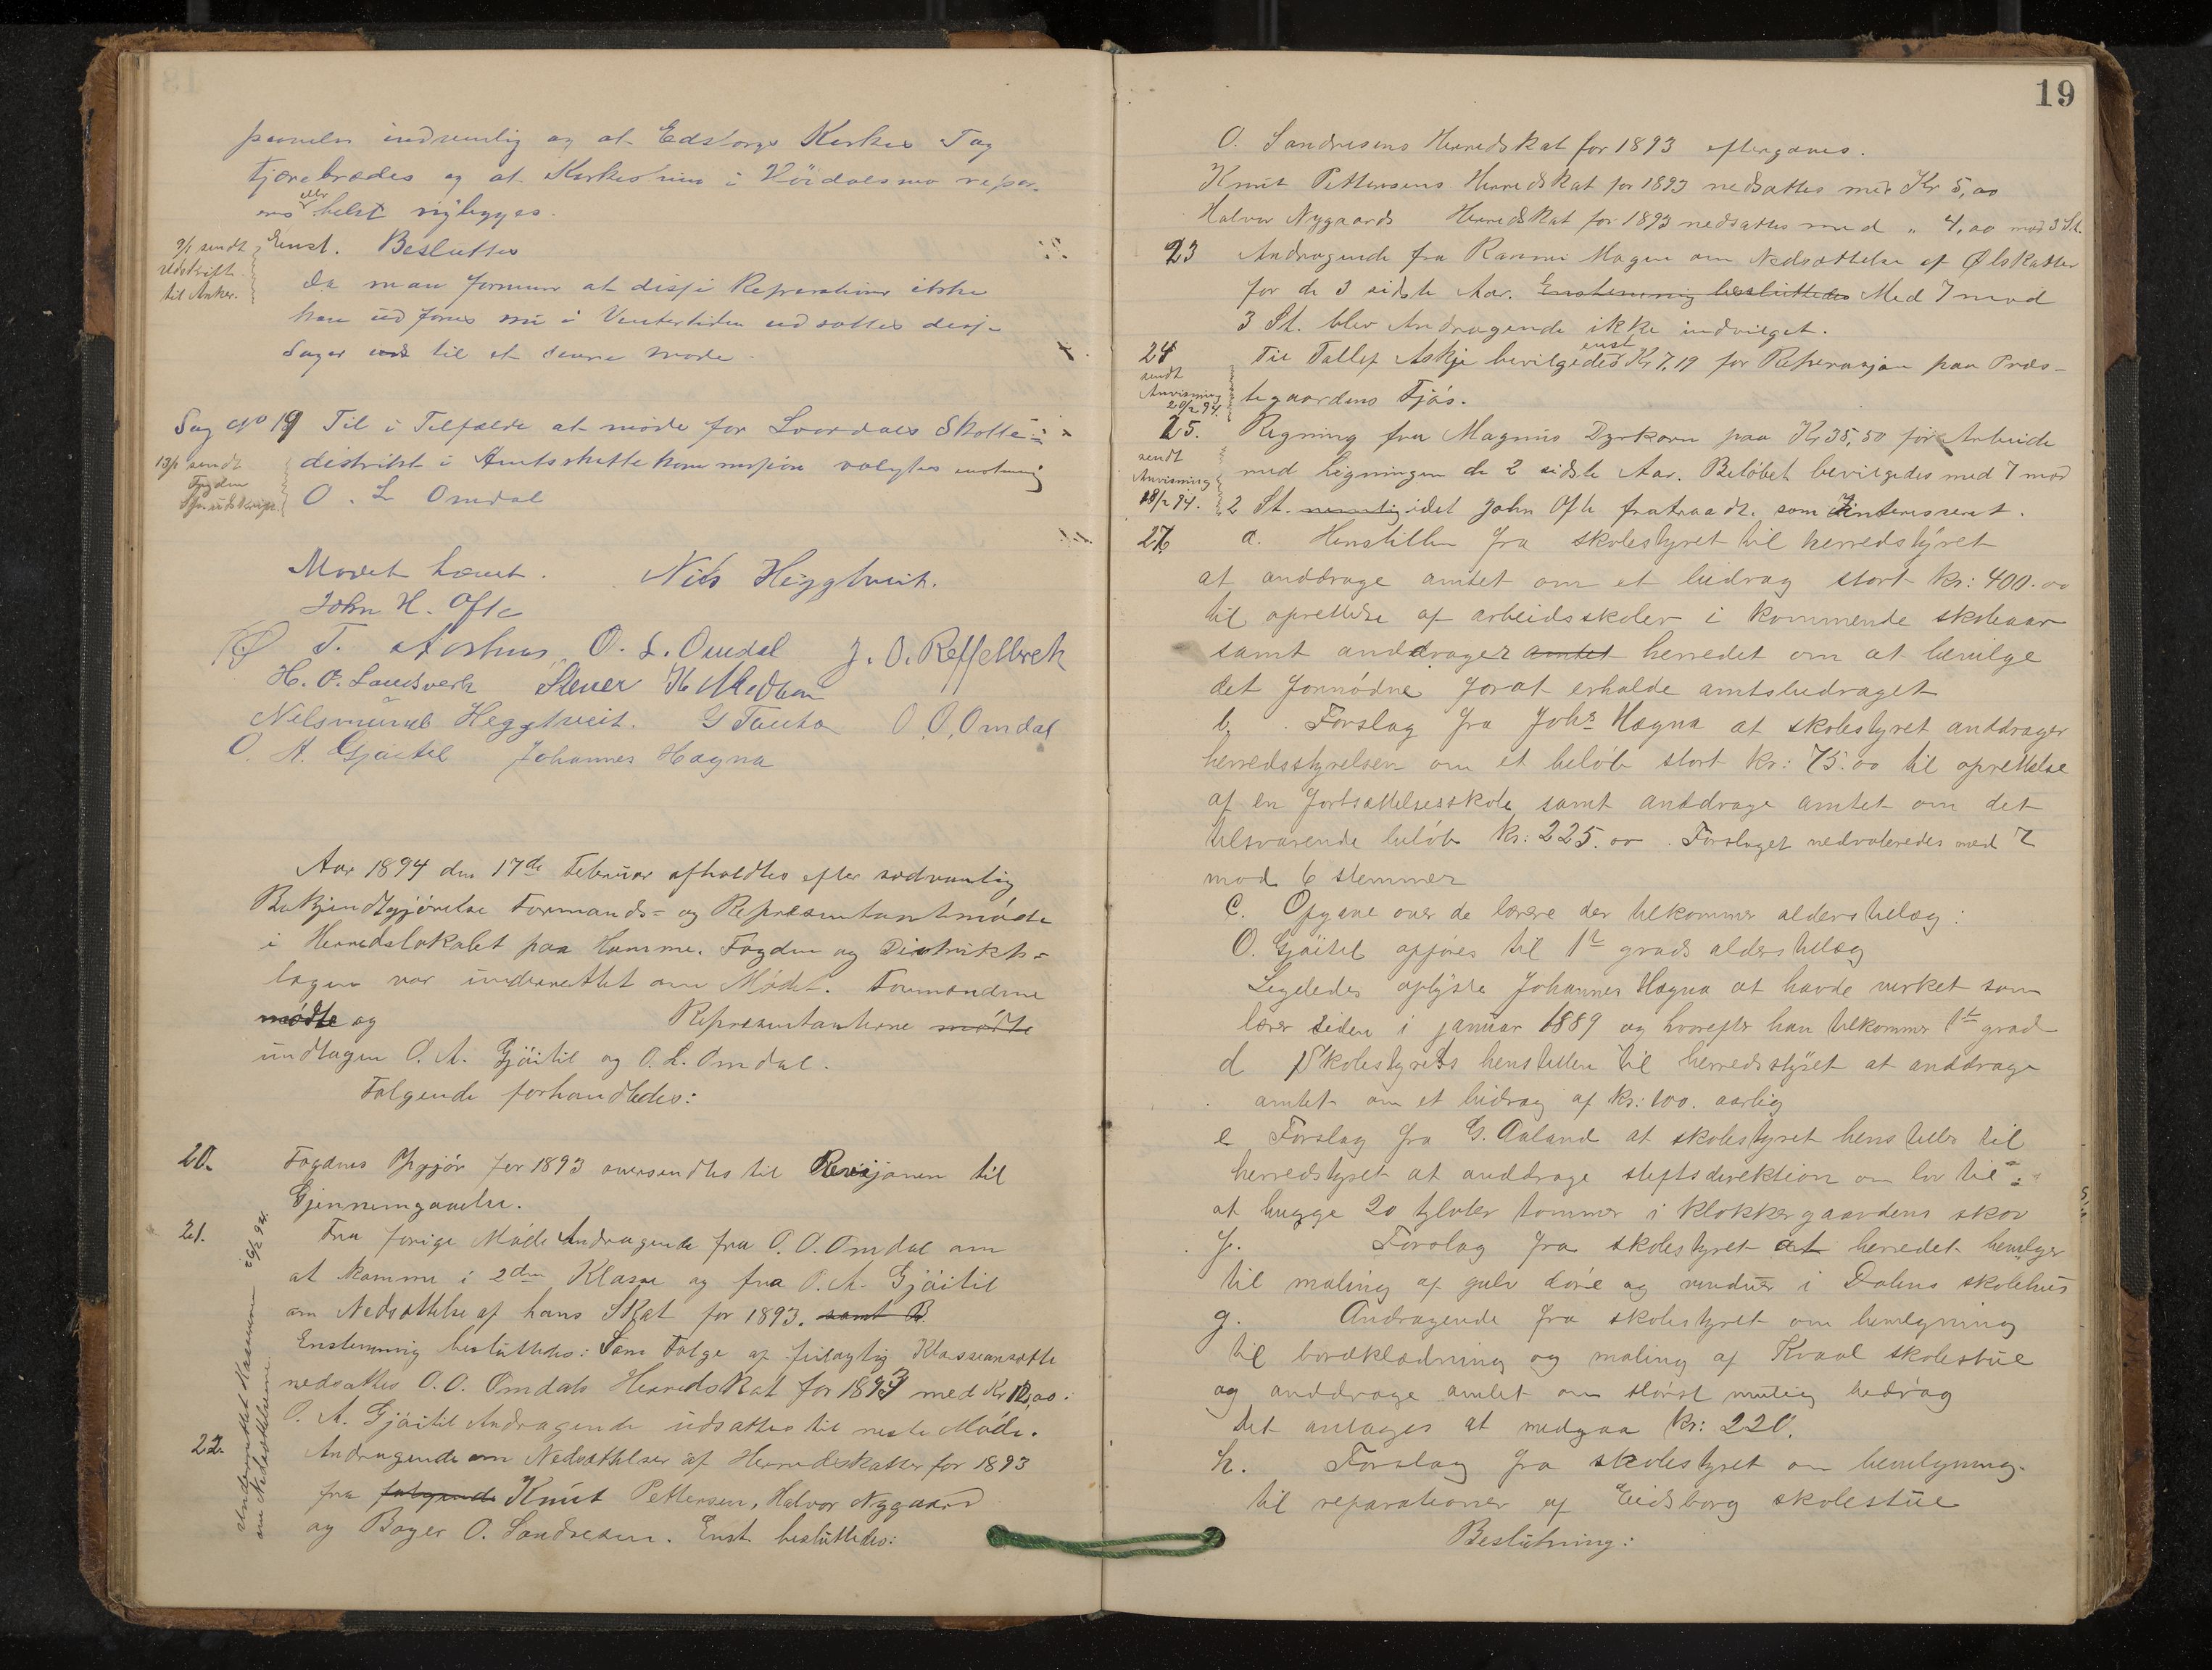 indvendig og at Edsborgs Kirkes Tag
tjærebrædes og at Kirkestuen i repar-
eres eller helst nybygges.
Enst. Besluttes
9/1 sendt
Udskrift
til Anker.
Da man formener at disse Reparationer ikke
kan udføres nu i Vintertiden udsættes disse
Sager til et senere Møde.
Sag No 19 Til i Tilfælde at møde for Laardals Skatte-
distrikt i Amtsskattekommissjon valgtes enstemmig
O. L Omdal
13/1 sendt
Fogden
Mødet hævet. Nils Heggtveit.
John H. Ofte
T. Aashus O. L. Omdal J. O. Reffelbrek
H. O. Landsverk Stener H Midtbøen
Nelsmund Heggtveit. G Tauta O. O. Omdal
O. A. Gjøitil Johannes Høgna
Aar 1894 den 17de Februar afholdtes efter sædvanlig
Bekjendtgjørelse Formands- og Representantmøde
i Herredslokalet paa Hamme. Fogden og Distrikts-
lægen var underrettet om Mødet. Formændene
mødte og Representanterne mødte
undtagen O. A. Gjøitil og O. L. Omdal.
Følgende forhandledes:
20. Fogdens Opgjør for 1893 oversendtes til Revisjonen til
Gjennemgaaelse.
21. Fra forrige Møde Andragende fra O. O. Omdal om
at komme i 2den Klasse og fra O. A. Gjøitil
om Nedsættelse af hans Skat for 1893. samt B.
Enstemmig besluttedes: Som Følge af feilagtig Klasseansætte
nedsattes O. O. Omdals Herredskat for 1893 med Kr 12,00.
O. A. Gjøitil Andragende udsattes til neste Møde.
22. Andragende om Nedsættelser af Herredskatter for 1893
fra følgende Knut Pettersen, Halvor Nygaard
og Bager O. Sandresen. Enst besluttedes:
Underrettet Kasserer 26/2 94.
om Nedsættelserne.
19
O. Sandresens Herredskat for 1893 eftergaves.
Knut Pettersens Herredskat for 1893 nedsattes med Kr 5,00
Halvor Nygaards Herredskat for 1893 nedsattes med " 4,00 mod 3 St.
23 Andragende fra Ranne Mogen om Nedsættelse af Ølskatter
for de 3 sidste Aar. Enstemmig besluttedes Med 7 mod
3 St. blev Andragende ikke indvilget.
24 Til Tallef Askje bevilgedes enst Kr 7,19 for Reperasjon paa Præs-
tegaardens Fjøs.
sendt
Anvisning
20/2 94.
25. Regning fra Magnus Dyrkorn paa Kr 35,50 for Arbeide
med Ligningen de 2 sidste Aar. Beløbet bevilgedes med 7 mod
2 St. nemlig idet John Ofte fratraadte som interesseret.
sendt
Anvisning
28/2 94.
26 a. Henstillen fra skolestyret til herredstyret
at anddrage amtet om et bidrag stort kr: 400.00
til oprettelse af arbeidsskoler i kommende skoleaar
samt anddrager amtet herredet om at bevilge
det fornødne forat erholde amtsbidraget
b. Forslag fra Johs Høgna at skolestyret anddrager
herredsstyrelsen om et beløb stort kr: 75.00 til oprettelse
af en fortsættelsesskole samt anddrage amtet om det
tilsvarende beløb kr: 225.00. Forslaget nedvoteredes med 7
mod 6 stemmer
c. Opgave over de lærere der tilkommer alderstillæg:
O. Gjøitil opføres til 1te grads alderstillæg
Ligeledes oplyste Johannes Høgna at havde virket som
lærer siden i januar 1889 og hvorefter han tilkommer 1te grad
d Skolestyrets henstillen til herredsstyret at anddrage
amtet om et bidrag af kr: 100. aarlig
e Forslag fra G. Aaland at skolestyret henstiller til
herredstyret at anddrage stiftsdirektion om lov til
at hugge 20 tylvter tømmer i klokkergaardens skov
f. Forslag fra skolestyret at herredet bevilger
til maling af gulv døre og vinduer i Dalens skolehus
g. Andragende fra skolestyret om bevilgning
til bordklædning og maling af Kvaal skolestue
og anddrage amtet om størst mulig bedrag
det antages at medgaa kr: 220.
h. Forslag fra skolestyret om bevilgning
til reparationer af Eidsborg skolestue
Beslutning: